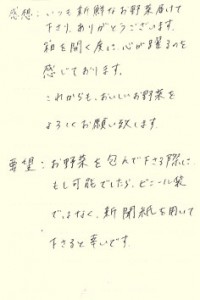 感想：いつも新鮮なお野菜届けて
下さり、ありがとうございます。
箱を開く度に、心が躍るのを
感じております。
これからも、おいしいお野菜を
よろしくお願い致します。
要望：お野菜を包んで下さる際に
もし可能でしたら、ビニール袋
ではなく、新聞紙を用いて
下さると幸いです。